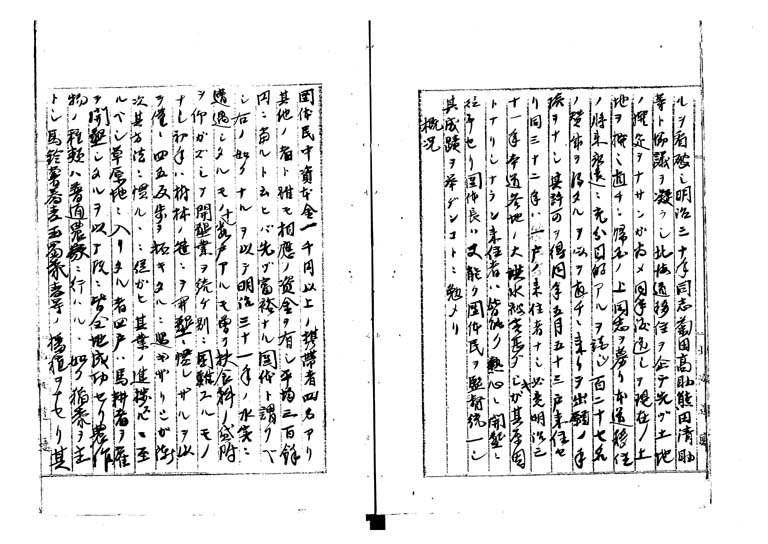 ルヲ看破シ明治三十年同志富田高助熊田清助
等ト協議ヲ凝ラシ北海道移住ヲ企テ先ツ土地
ノ撰定ヲナサンガ為メ同年渡道シテ現在ノ土
地ヲ撰ミ直チニ帰国ノ上同志ヲ募リ本道移住
ノ将来永遠ニ充分目的アルヲ説シ百二十七名
ノ賛成ヲ得タルヲ以テ直チニ之レヲ出願ノ手
続ヲナシ其許可ヲ得同年五月五十三戸来住セ
リ同三十二年ハ一戸ノ来住者ナシ必竟明治三
十一年本道各地ノ大洪水被害甚ダシキガ其原因
トナリシナラン来住者ハ皆能ク熱心ニ開墾ニ
従事セリ団体長ハ又能ク団体民ヲ監督統一シ
其成蹟ヲ挙ゲンコトニ勉メリ
概況
団体民中資本金一千円以上ノ携帯者四名アリ
其他ノ者ト雖モ相應ノ資金ヲ有シ平均三百餘
円ニ当ルト云ヒバ先ヅ富裕ナル団体ト謂フベ
シ右ノ如クナルヲ以テ明治三十一年ノ水害ニ
遭遇シタルモノ十数戸アルモ曽テ扶食料ノ給助
ヲ仰ガズシテ開墾業ヲ続ケ別ニ困難スルモノ
ナシ初年ハ樹林ノ笹ニテ開墾ニ慣レザルヲ以
テ僅ニ四五反歩ヲ拓キタルニ過ギザリシガ漸
次其方法ニ慣ルヽニ従ガヒ其業ノ進捗スルニ至
ルベシ草原地ニ入リタル者四戸ハ馬耕者ヲ雇
ヲ開墾シタルヲ以テ既ニ皆全地成功セリ農作
物ノ種類ハ普通農家ニ行ハルヽ如ク稲黍ヲ主
トシ馬鈴薯蕎麦玉蜀黍麦等ノ播種ヲナセリ其